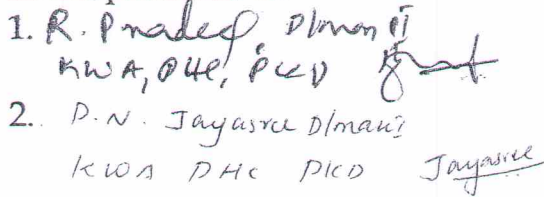 1. R. Pradeep D/man II
KWA, PHC, PKD
2. D.N. Jayasree D/man I
KWA PHC PKD Jayasree